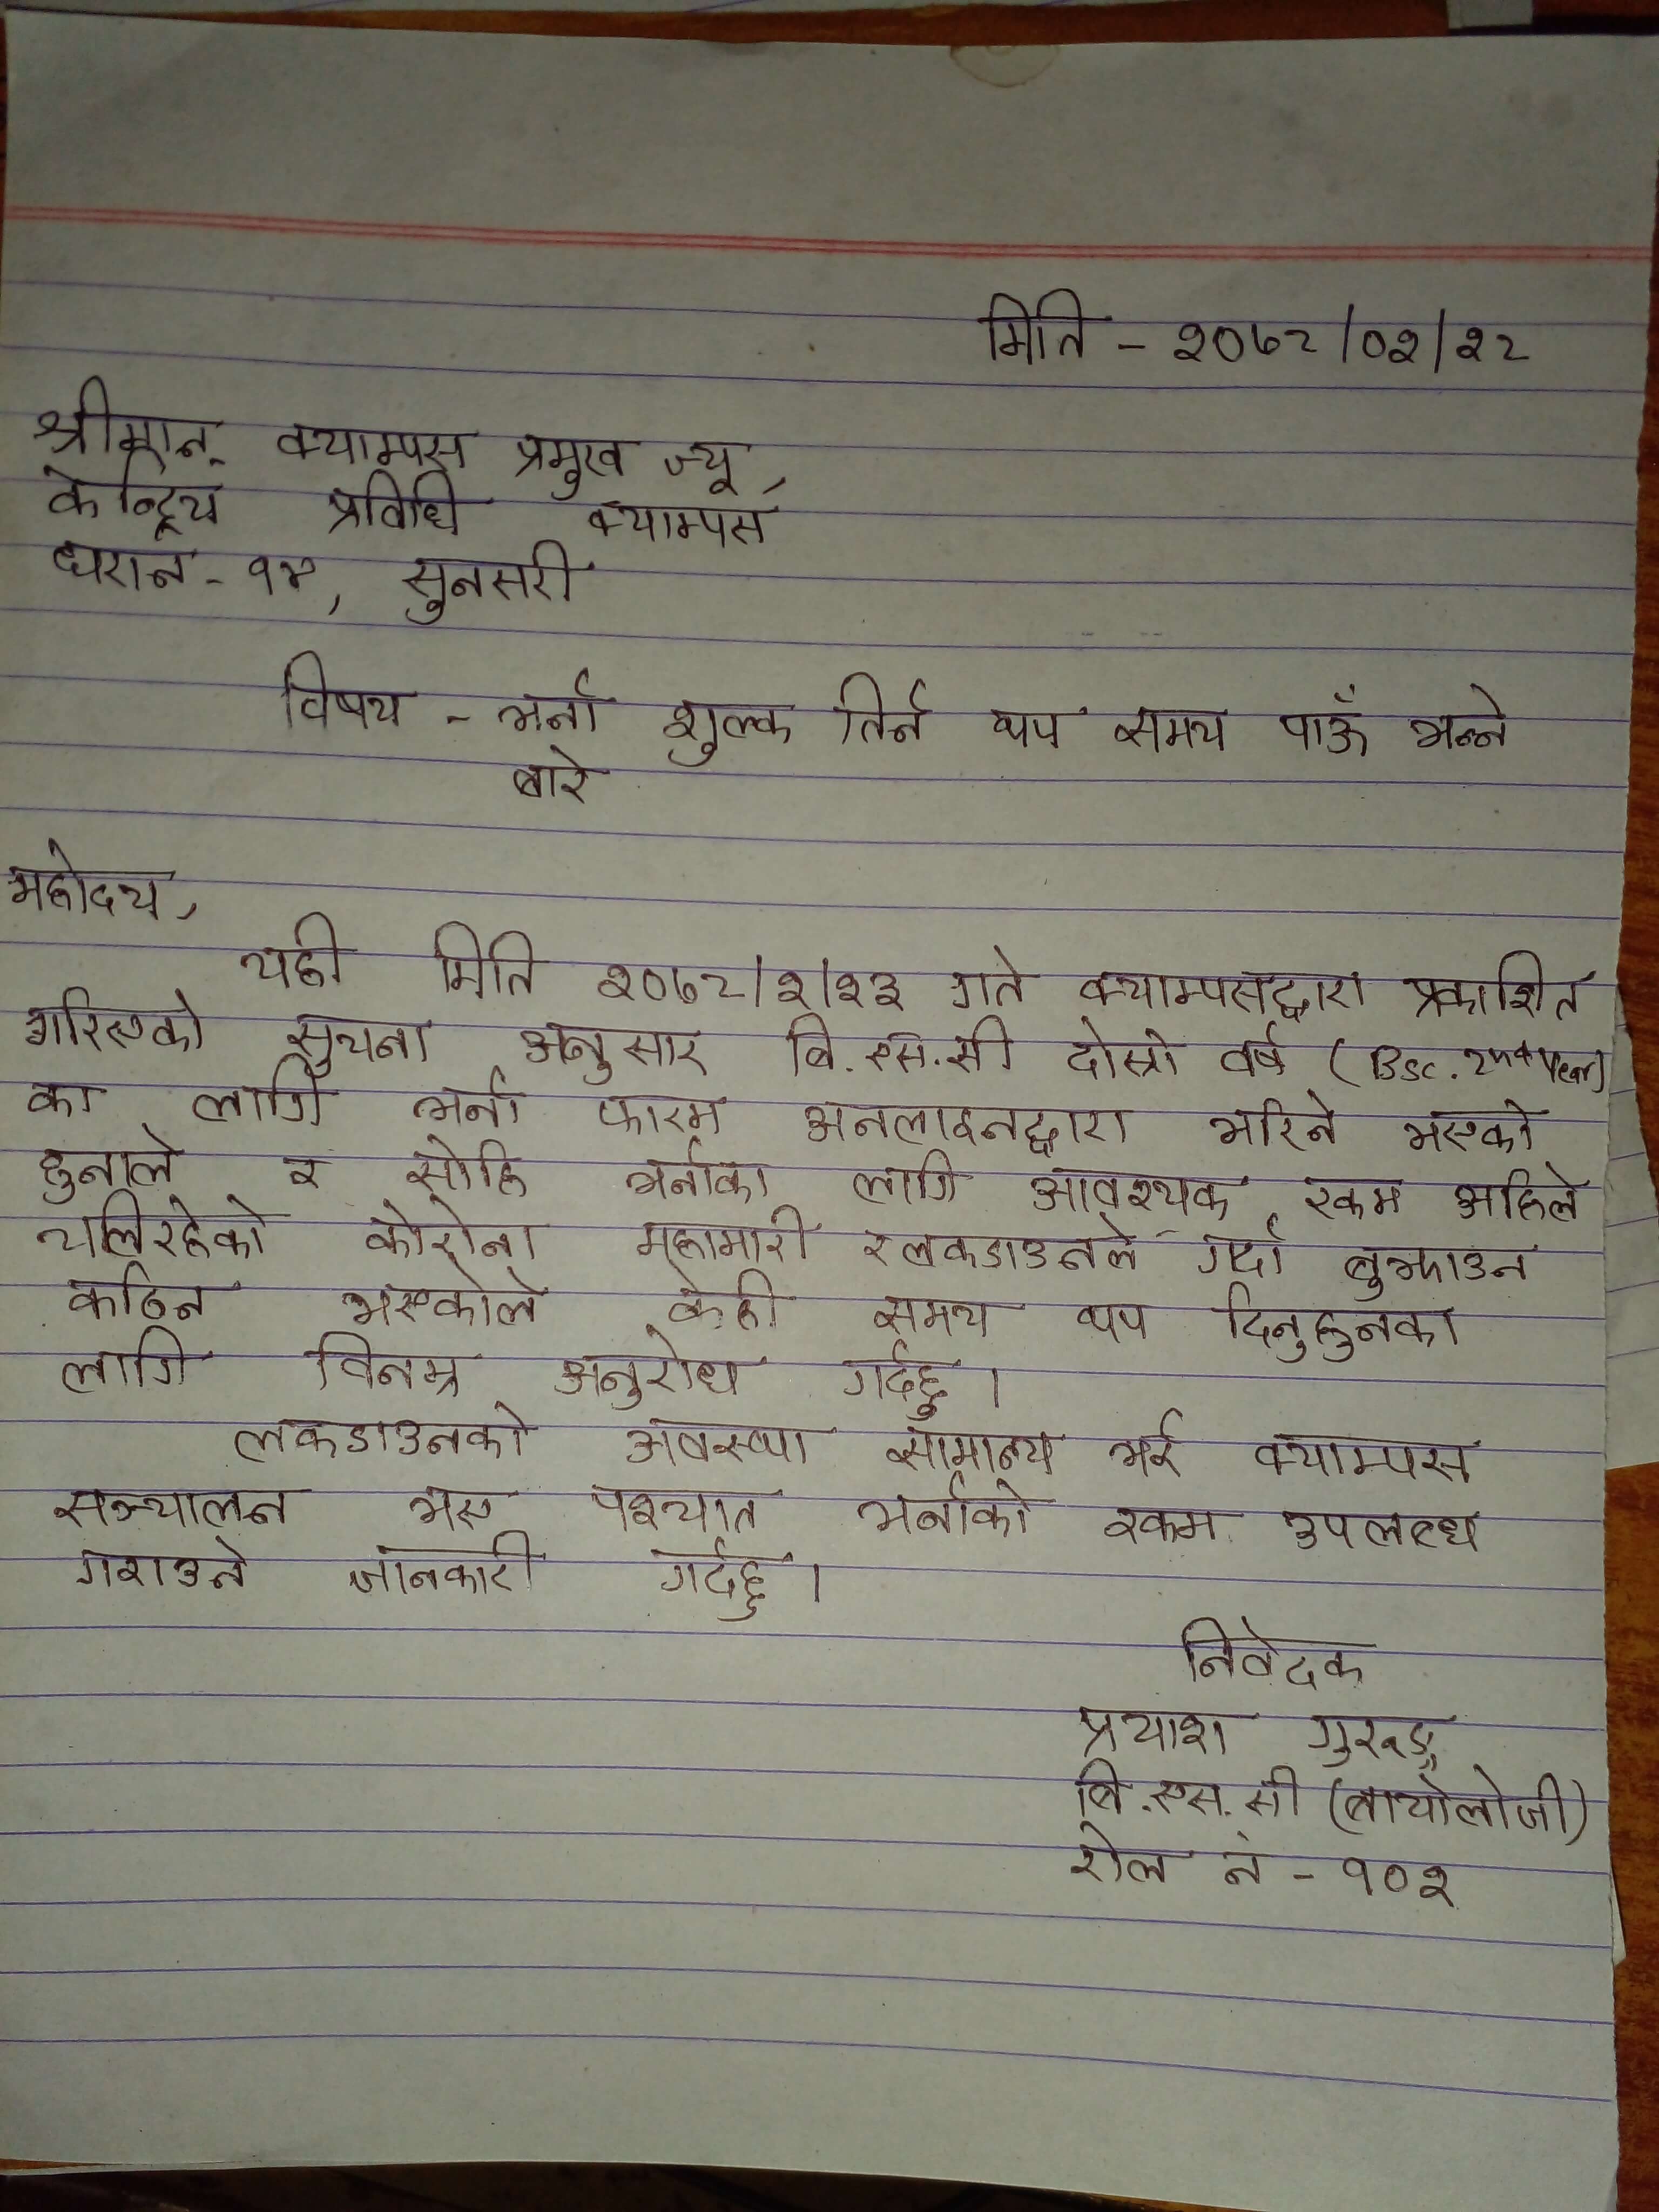 मिति - २०७८/०२/२८
श्रीमान् क्याम्पस प्रमुख ज्यू,
केन्द्रिय प्रविधि क्याम्पस
धरान - १४, सुनसरी
विषय - भर्ना शुल्क तिर्न थप समय पाऊँ भन्ने
बारे
महोदय,
यही मिति २०७८/२/२३ गते क्याम्पसद्वारा प्रकाशित
गरिएको सुचना अनुसार बि.एस.सी दोस्रो वर्ष (Bsc. 2nd Year)
का लागि भर्ना फारम अनलाइनद्वारा भरिने भएको
हुनाले र सोहि भर्नाका लागि आवश्यक रकम अहिले
चलिरहेको कोरोना महामारी र लकडाउनले गर्दा बुझाउन
कठिन भएकोले केही समय थप दिनुहुनका
लागि विनम्र अनुरोध गर्दछु ।
लकडाउनको अवस्था सामान्य भई क्याम्पस
सञ्चालन भए पश्चात भर्नाको रकम उपलब्ध
गराउने जानकारी गर्दछु ।
निवेदक
प्रयाश गुरुङ्ग
बि.एस.सी (बायोलोजी)
रोल नं - १०२